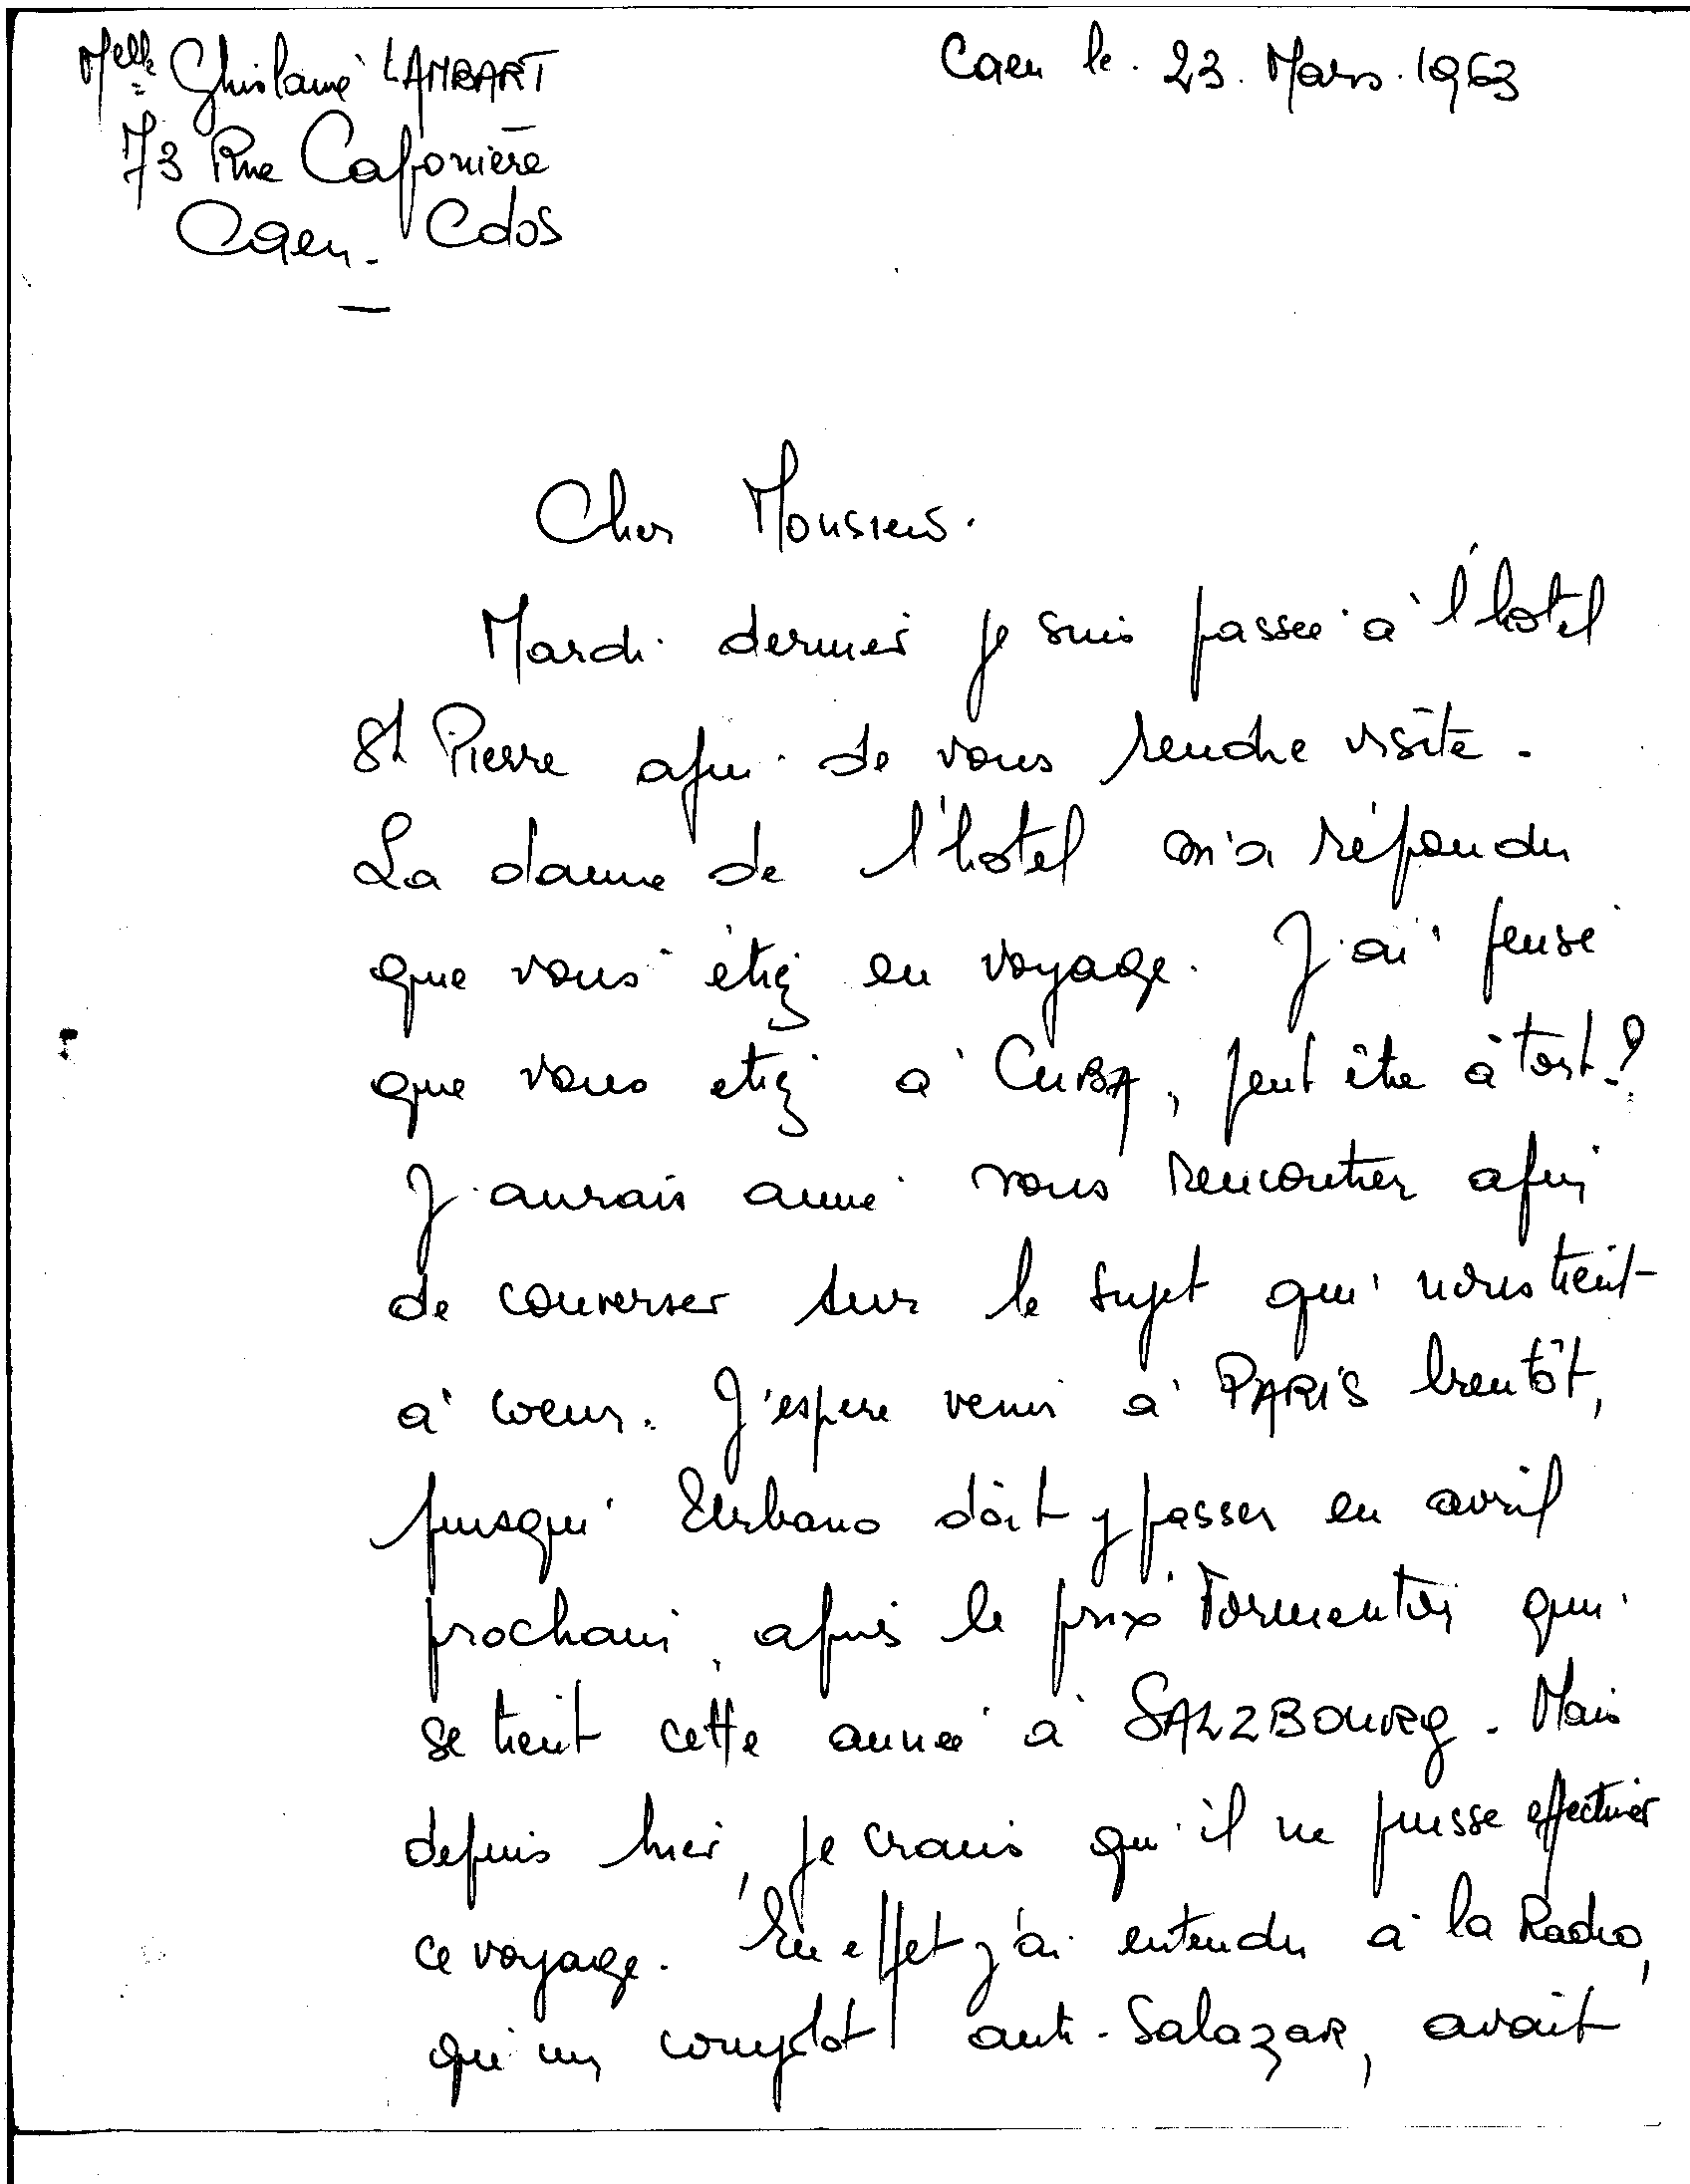 Melle Ghislaine LAMBART
73 Rue Caponière
Caen - Cdos
Caen le 23 Mars 1963
Cher Monsieur.
Mardi dernier je suis passée à l'hotel
St Pierre afin de vous rendre visite.
La dame de l'hotel m'a répondu
que vous étiez en voyage. J'ai pensé
que vous etiez à CUBA, peut être à tort?
J'aurais aimé vous rencontrer afin
de converser sur le sujet qui nous tient
à coeur. J'espere venir à PARIS bientôt,
puisqu' Urbano doit y passer en avril
prochain, après le prix Formentor qui
se tient cette année à SALZBOURG. Mais
depuis hier, je crains qu'il ne puisse effectuer
ce voyage. En effet j'ai entendu à la Radio,
qu'un complot anti-Salazar, avait